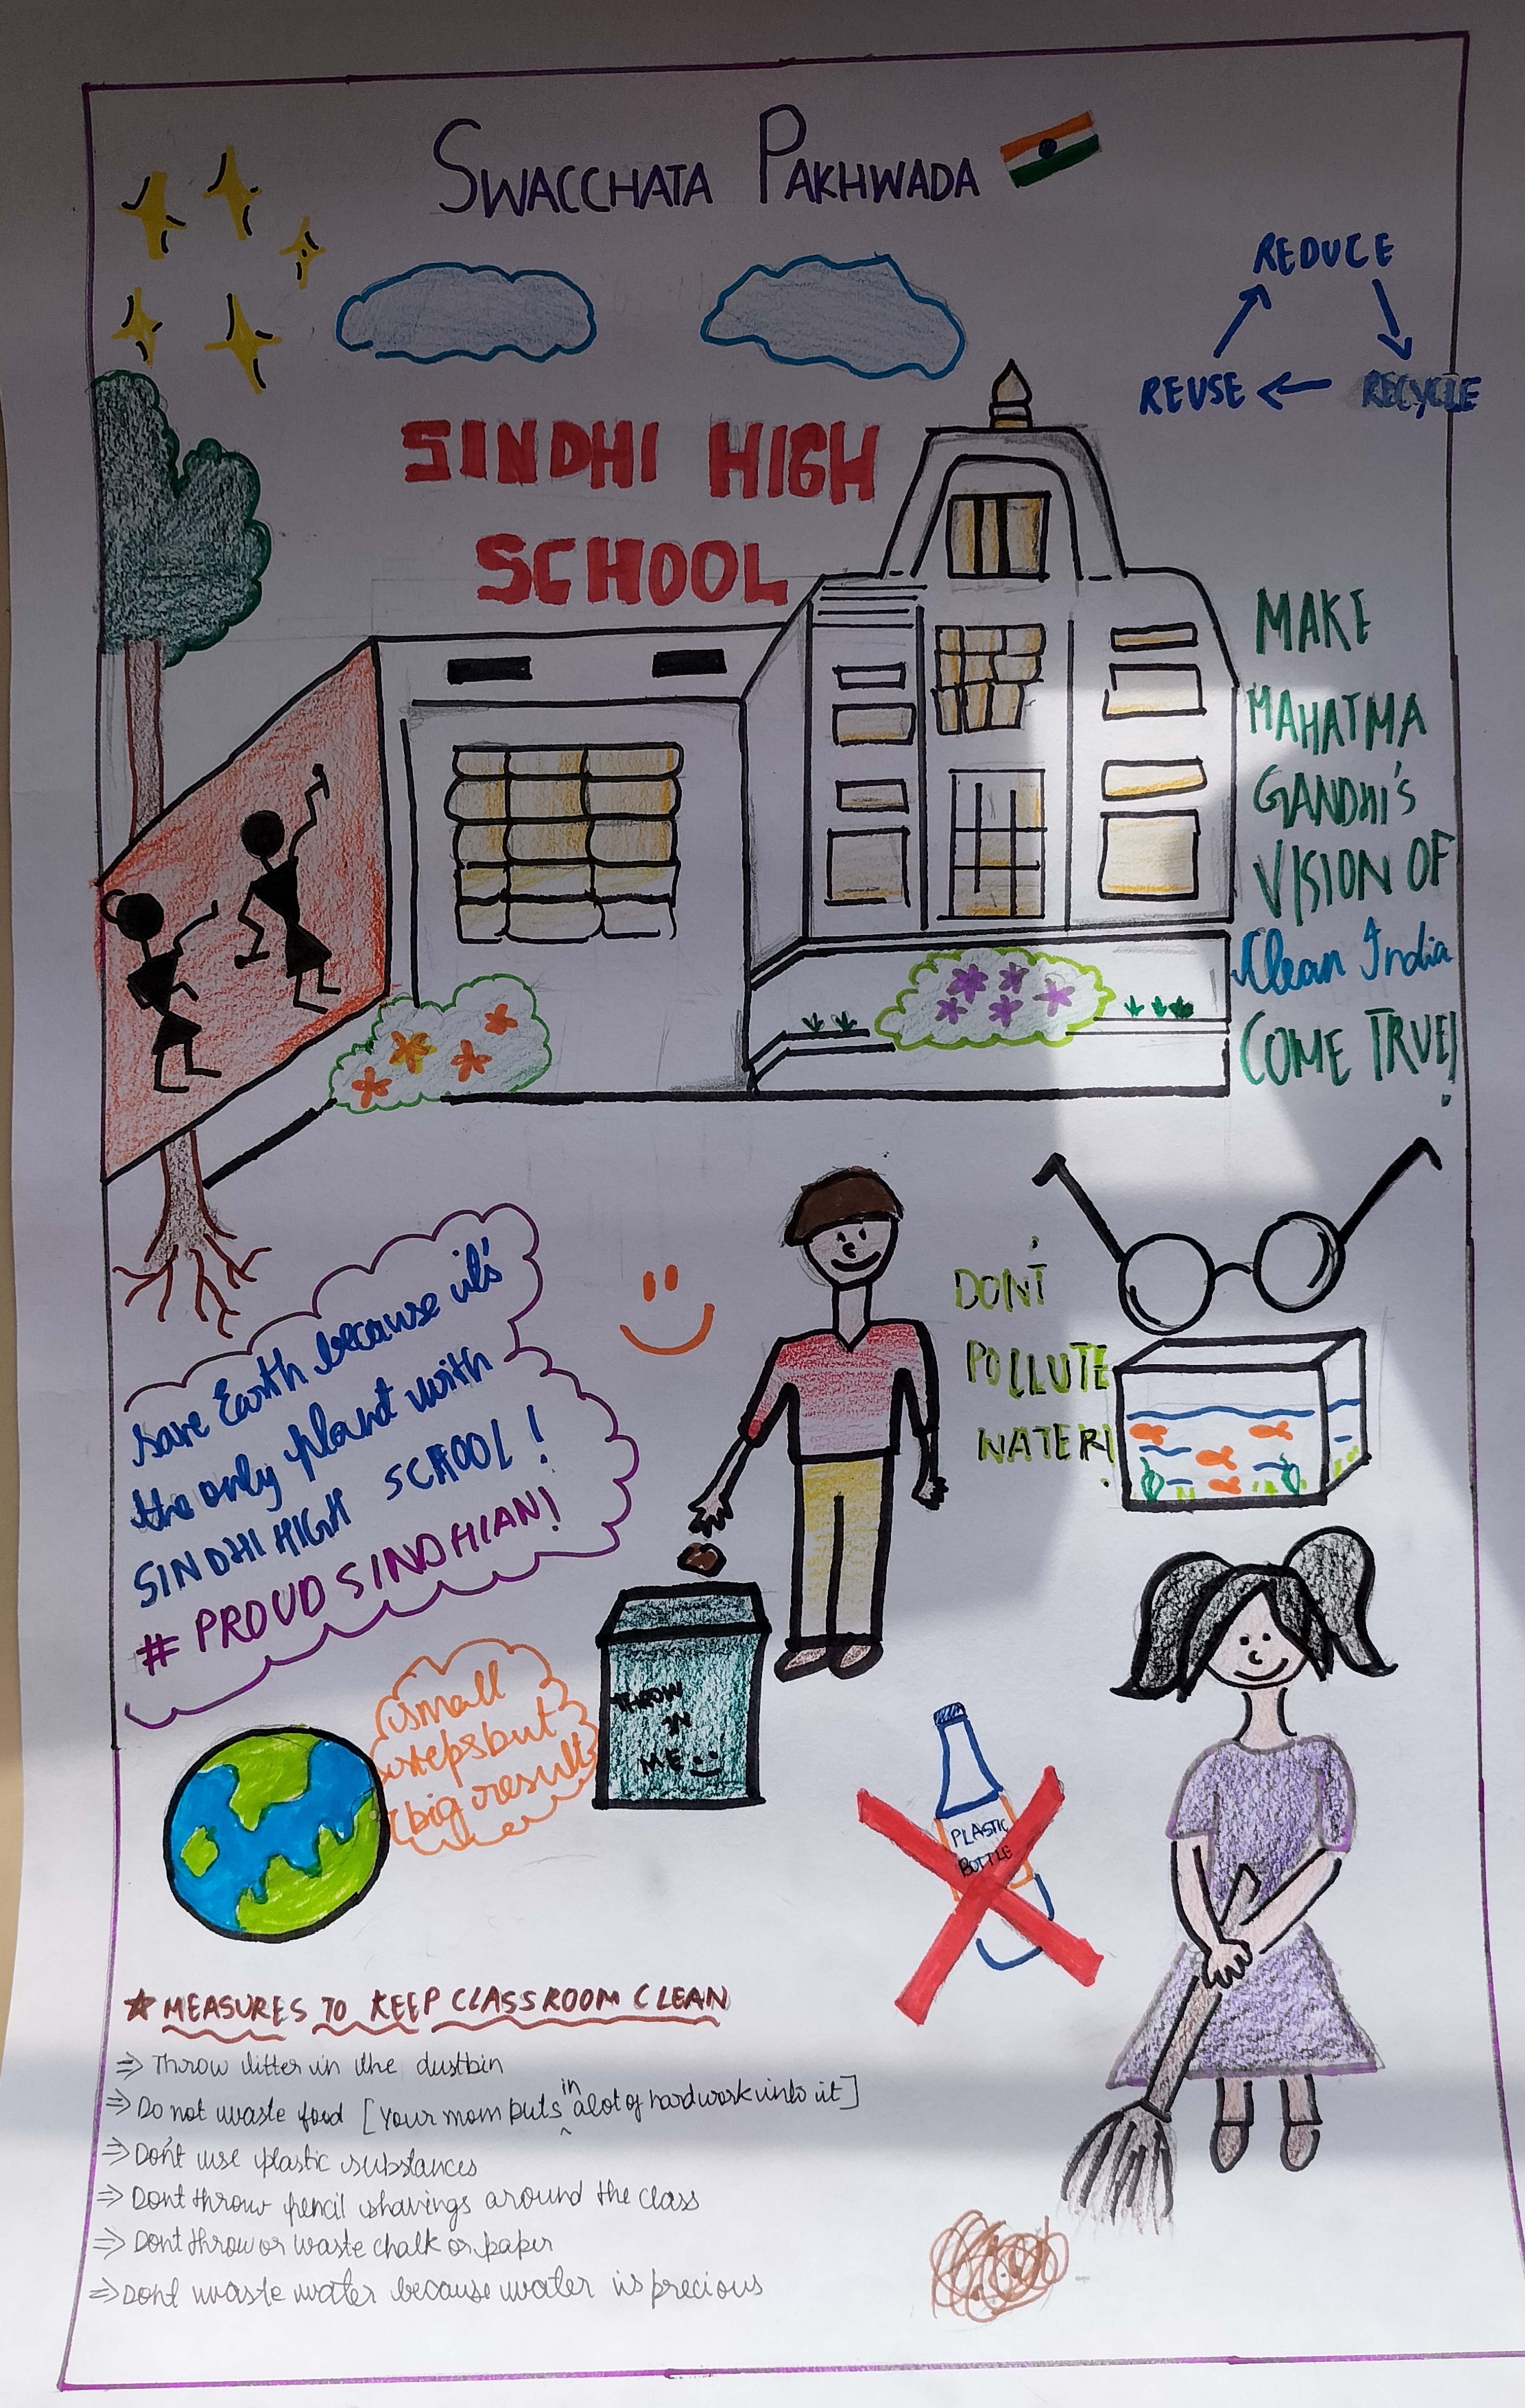 SWACCHATA PAKHWADA
REDUCE
REUSE
RECYCLE
SINDHI HIGH
SCHOOL
MAKE
MAHATMA
GANDHI'S
VISION OF
Clean India
COME TRUE!
save Earth because it's
the only planet with
SINDHI HIGH SCHOOL!
# PROUD SINDHIAN!
DON'T
POLLUTE
WATER!
small
steps but
big result
THROW
IN
ME
PLASTIC
BOTTLE
MEASURES TO KEEP CLASSROOM CLEAN
⇒ Throw litter in the dustbin
⇒ Do not waste food [Your mom puts in a lot of hardwork into it]
⇒ Don't use plastic substances
⇒ Dont throw pencil shavings around the class
⇒ Dont throw or waste chalk or paper
⇒ Dont waste water because water is precious